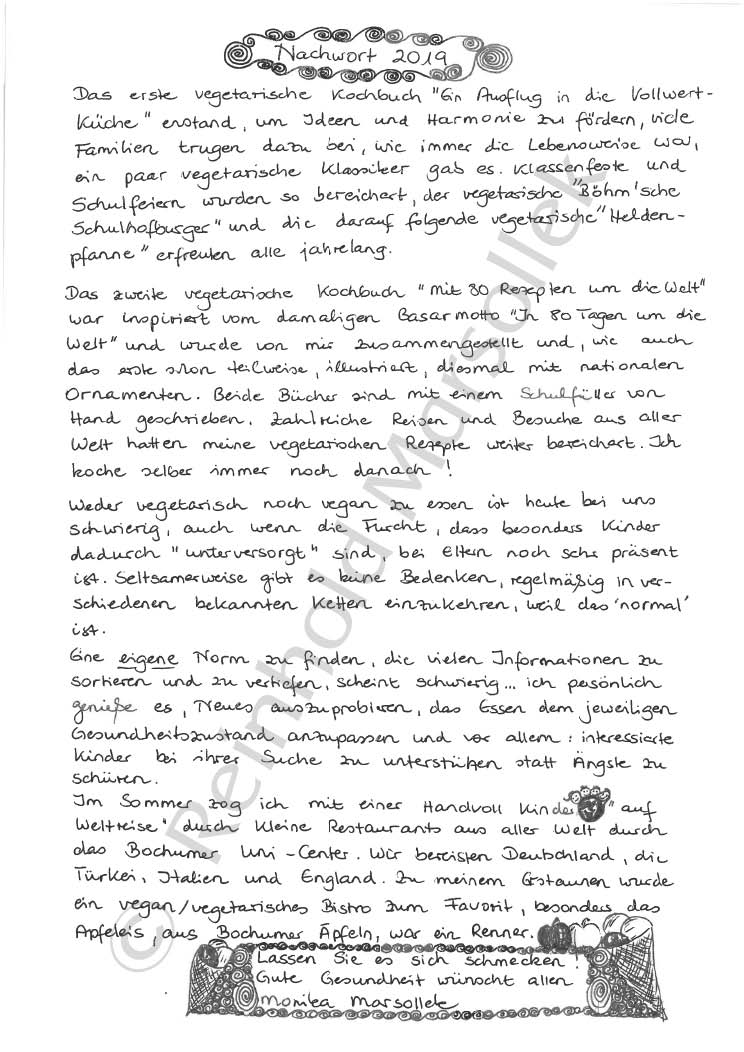 Nachwort 2019
Das erste vegetarische Kochbuch "Ein Ausflug in die Vollwert-
Küche" enstand, um Ideen und Harmonie zu fördern, viele
Familien trugen dazu bei, wie immer die Lebensweise war,
ein paar vegetarische Klassiker gab es. Klassenfeste und
Schulfeiern wurden so bereichert, der vegetarische "Böhm'sche
Schulhofburger" und die darauf folgende vegetarische "Helden-
pfanne" erfreuten alle jahrelang.
Das zweite vegetarische Kochbuch "Mit 80 Rezepten um die Welt"
war inspiriert vom damaligen Basarmotto "In 80 Tagen um die
Welt" und wurde von mir zusammengestellt und, wie auch
das erste schon teilweise, illustriert, diesmal mit nationalen
Ornamenten. Beide Bücher sind mit einem Schulfüller von
Hand geschrieben. Zahlreiche Reisen und Besuche aus aller
Welt hatten meine vegetarischen Rezepte weiter bereichert. Ich
koche selber immer noch danach!
Weder vegetarisch noch vegan zu essen ist heute bei uns
schwierig, auch wenn die Furcht, dass besonders Kinder
dadurch "unterversorgt" sind, bei Eltern noch sehr präsent
ist. Seltsamerweise gibt es keine Bedenken, regelmäßig in ver-
schiedenen bekannten Ketten einzukehren, weil das 'normal'
ist.
Eine eigene Norm zu finden, die vielen Informationen zu
sortieren und zu vertiefen, scheint schwierig... ich persönlich
genieße es, Neues auszuprobieren, das Essen dem jeweiligen
Gesundheitszustand anzupassen und vor allem: interessierte
Kinder bei ihrer Suche zu unterstützen statt Ängste zu
schüren.
Im Sommer zog ich mit einer Handvoll Kinder "auf
Weltreise" durch kleine Restaurants aus aller Welt durch
das Bochumer Uni-Center. Wir bereisten Deutschland, die
Türkei, Italien und England. Zu meinem Erstaunen wurde
ein vegan/vegetarisches Bistro zum Favorit, besonders das
Apfeleis, aus Bochumer Äpfeln, war ein Renner.
Lassen Sie es sich schmecken!
Gute Gesundheit wünscht allen
Monika Marsollek
© Reinhold Marsollek